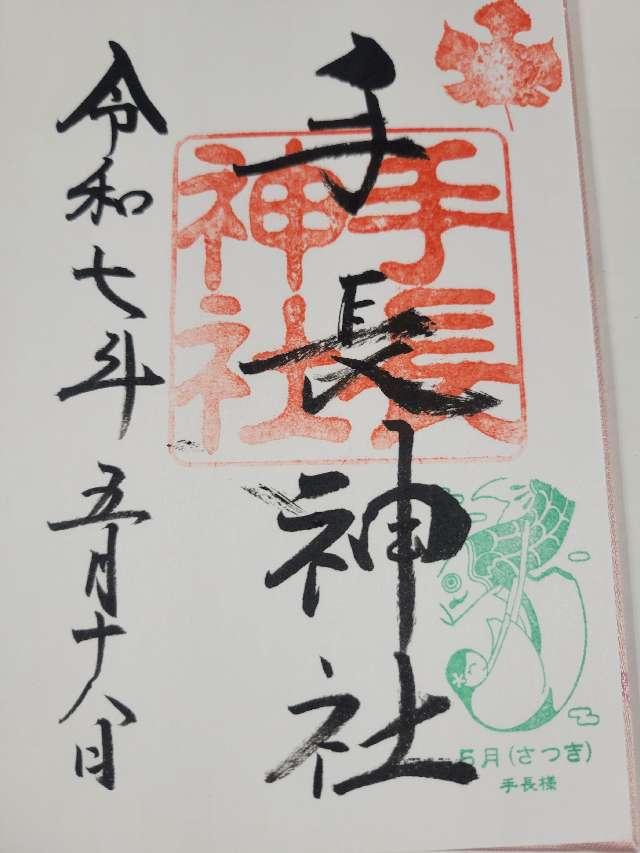 手長神社
手長
神社
5月(さつき)
手長様
令和七年 五月十八日